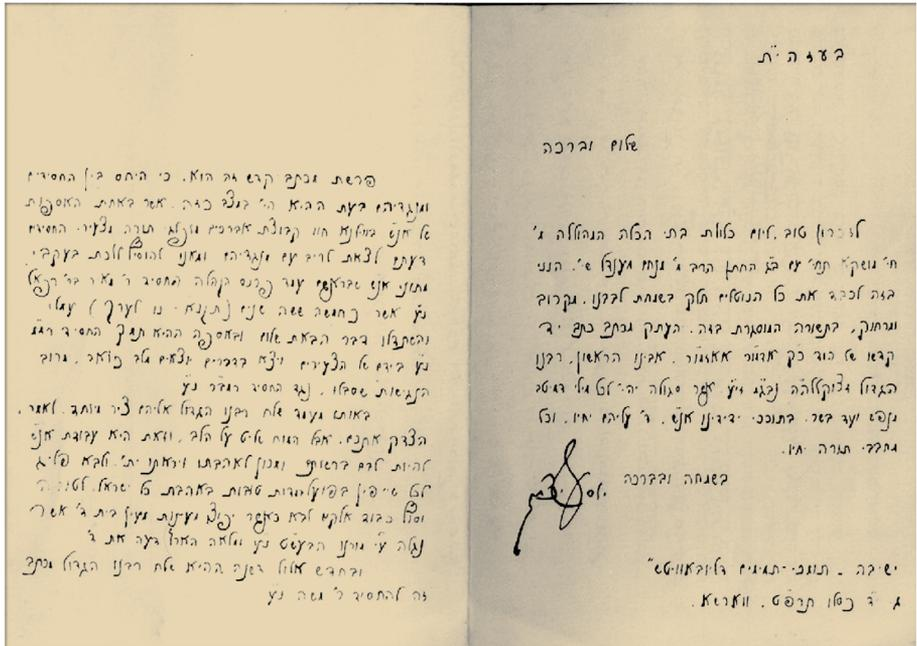 בעזהי"ת
שלום וברכה
לזכרון טוב, ליום כלולת בתי הכלה המהוללה מ'
חי' מושקא תחי' עם ב"ג החתן הרב מ' מנחם מענדל שי'. הנני
בזה לכבד את כל הנוטלים חלק בשמחת לבבנו, מקרוב
ומרחוק, בתשורה המוסגרת בזה, העתק מכתב כתב יד
קדשו של הוד כ"ק אדמו"ר אאזמו"ר, אבינו הראשון, רבנו
הגדול זצוקללה"ה נבג"מ זי"ע אשר סגולה יהי' לכל מילי דמיטב
מנפש ועד בשר, בתוככי ידידינו אנ"ש, ד' עליהם יחיו, וכל
מחבבי תורה יחיו.
בשמחה ובברכה
יוסף יצחק
ישיבה - תומכי-תמימים דליובאוויטש"
ג' י"ד כסלו תרפ"ט. ווארשא.
פרשת מכתב קדש זה הוא, כי היחס בין החסידים
ומנגדיהם בעת ההיא הי' במצב כזה, אשר באחת האספות
של אנ"ש בווילנא חוו קבוצת אברכים מופלגי תורה מצעירי החסידים
דעתם לצאת לריב עם מנגדיהם ומאנו להוסיף ללכת בעקבי
מתוני אנ"ש שבראשם עמד פרנס הקהלה החסיד ר' מאיר בר' רפאל
נ"ע אשר כחמשה ששה שנים (תקנ"א - נו לערך) עמלו
והשתדלו דבר הבאת שלום ובאספה ההיא תמך החסיד רמ"מ
נ"ע בידם של הצעירים ויצא בדברים יוצאים מלב כואב, מרוב
הנגישות שסבלו, נגד החסיד רמב"ר נ"ע
באותו מעמד שלח רבנו הגדול אליהם ציר מיוחד, לאמר,
הצדק אתכם, אבל המוח שליט על הלב, וזאת היא עבודת אנ"ש
להיות לבם ברשותם ומכון לאהבתו ויראתו ית', ולבא פליג
לכל שייפין בפועל מדות טובות באהבת כל ישראל, לטובה
וסוף כבוד אלקים לבא כאשר יפוצו מעינות מעין בית ד' אשר
נגלה ע"י מורנו הבעש"ט נ"ע ומלאה הארץ דעה את ד'
ובחדש אלול דשנה ההיא שלח רבנו הגדול מכתב
זה להחסיד ר' משה נ"ע